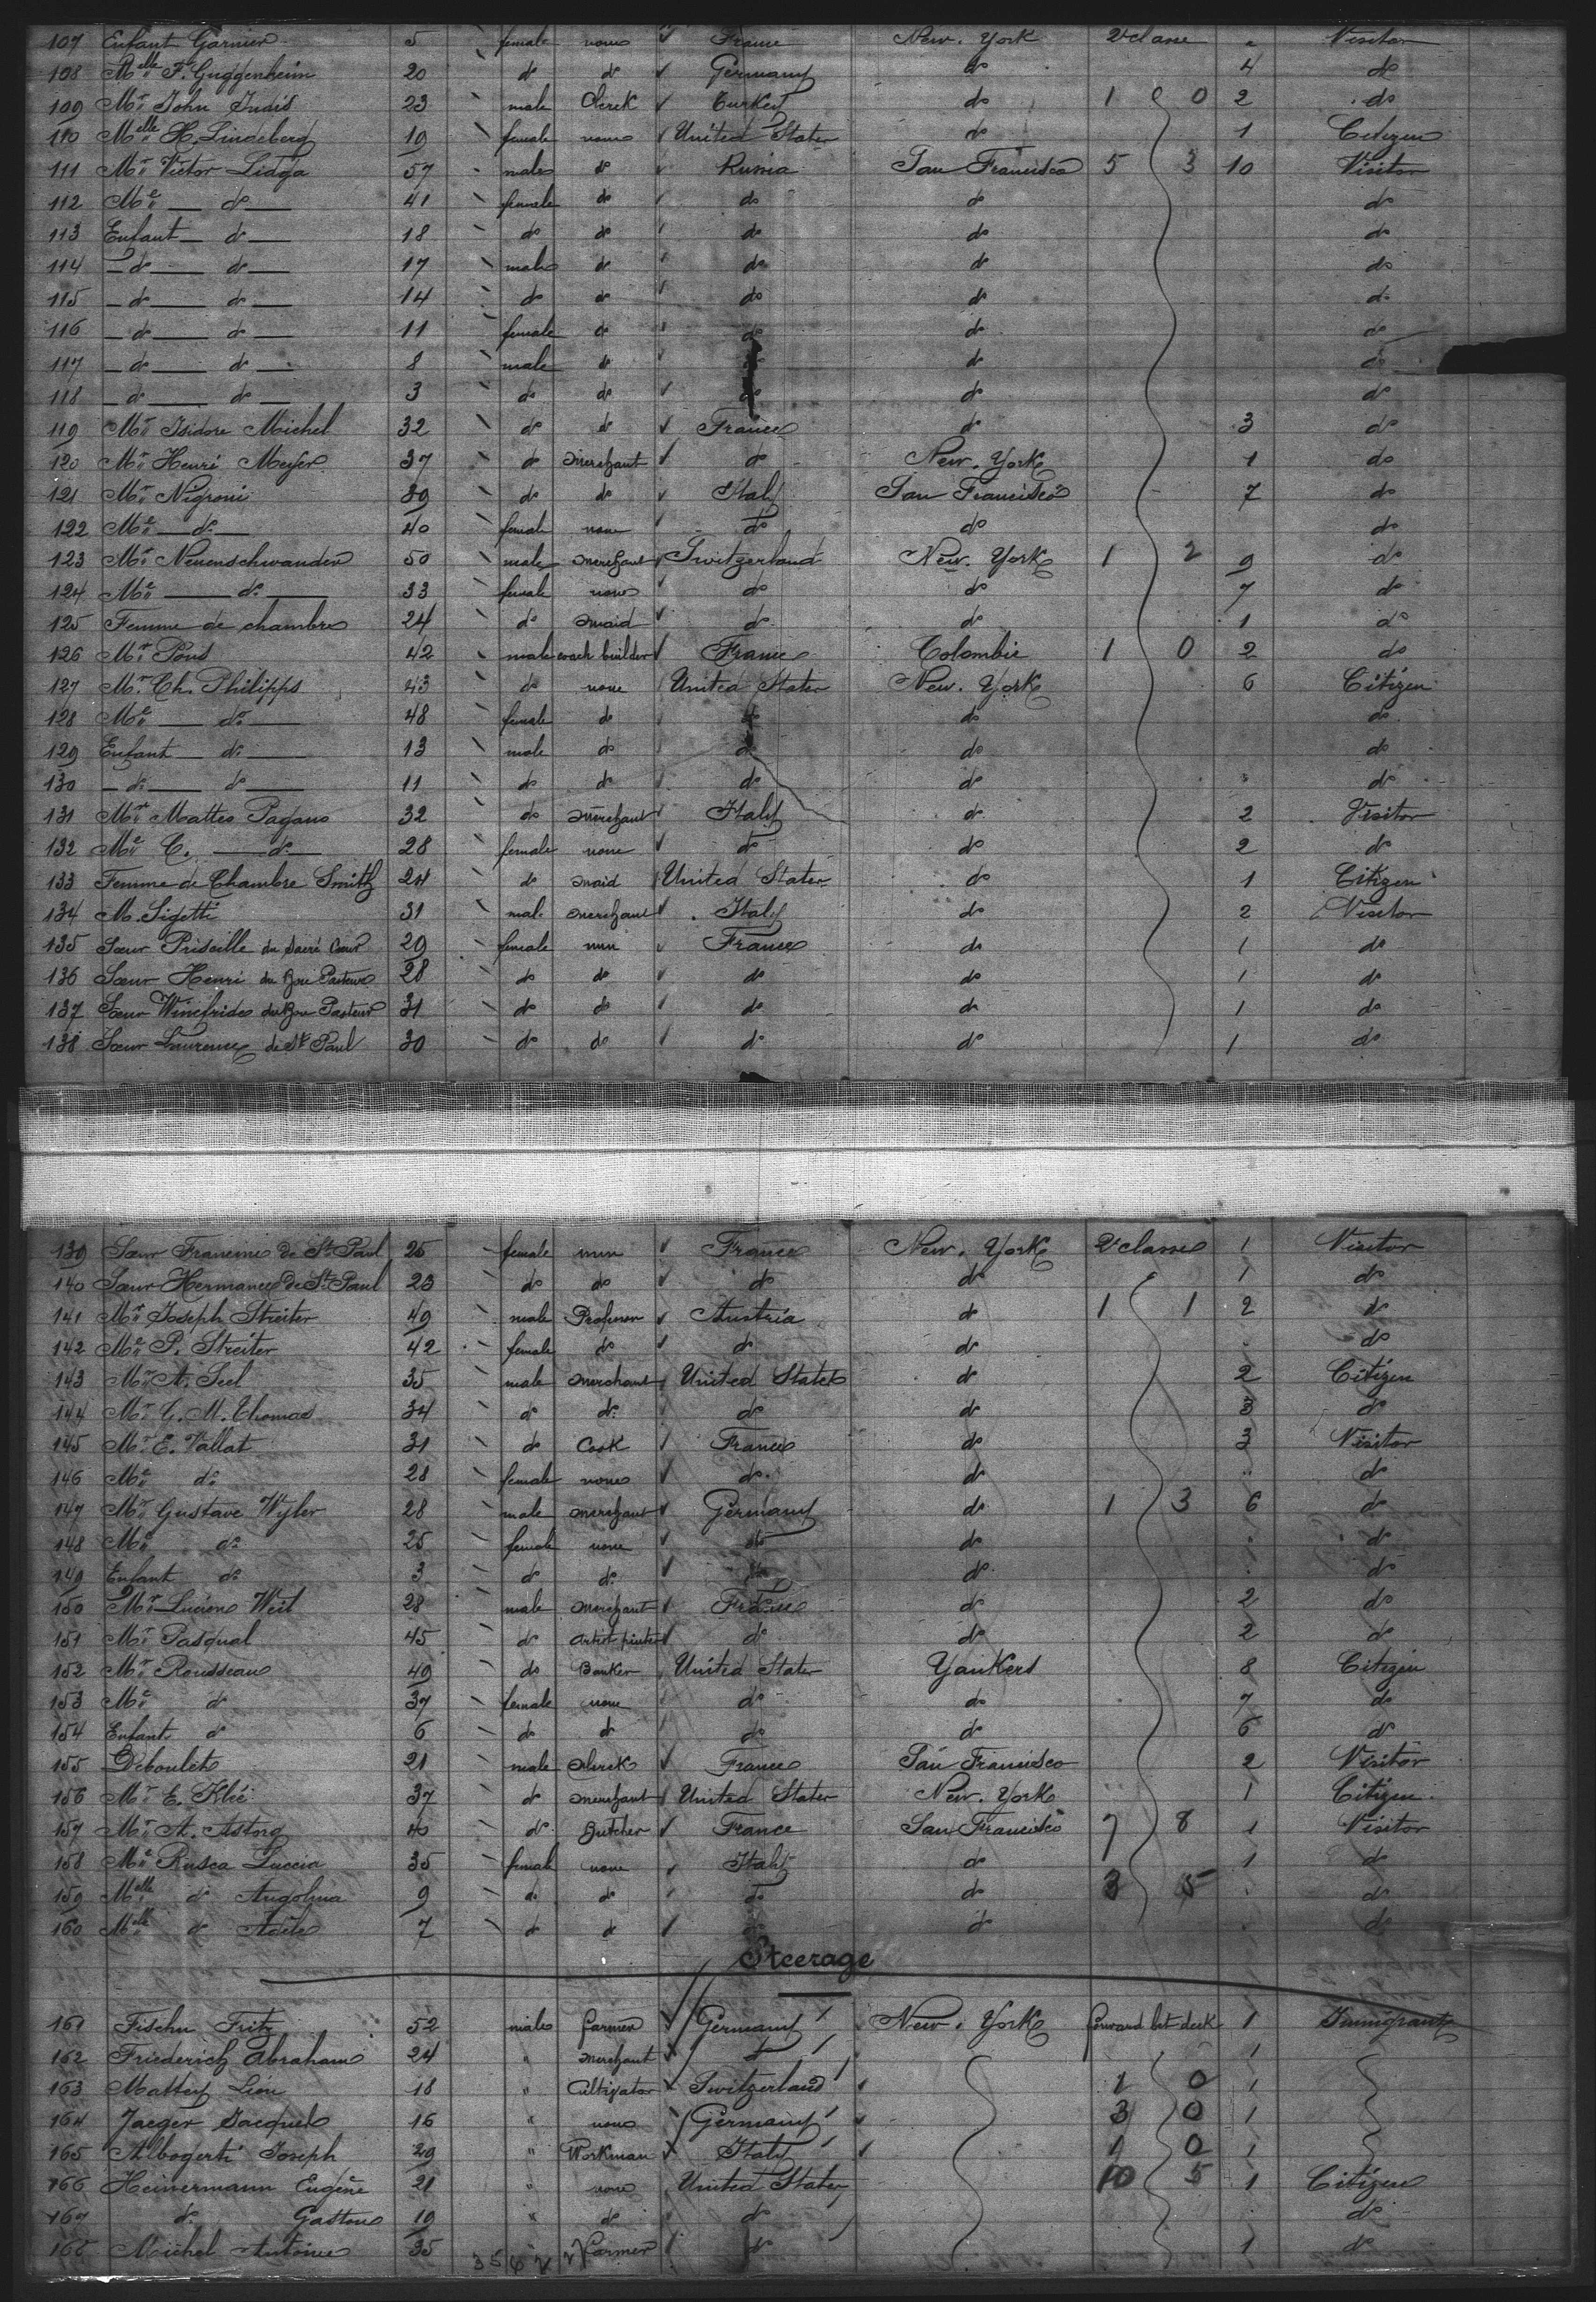 107 Enfant Garnier 5 female none France New. York 2e classe " Visitor
108 Melle F. Guggenheim 20 do do Germany do 4 do
109 Mr John Judis 23 male Clerck Turkey do 1 0 2 do
110 Melle H. Lindeberg 19 female none United States do 1 Citizen
111 Mr Victor Lidga 57 male do Russia San Francisco 5 3 10 Visitor
112 Me do 41 female do do do do
113 Enfant do 18 do do do do do
114 do do 17 male do do do do
115 do do 14 do do do do do
116 do do 11 female do do do do
117 do do 8 male do do do do
118 do do 3 do do do do do
119 Mr Isidore Michel 32 do do France do 3 do
120 Mr Henri Meyer 37 do merchant do New. York 1 do
121 Mr Nigroni 39 do do Italy San Francisco 7 do
122 Me do 40 female none do do do
123 Mr Neuenschwander 50 male merchant Switzerland New. York 1 2 9 do
124 Me do 33 female none do do 7 do
125 Femme de chambre 24 do maid do do 1 do
126 Mr Pons 42 male coach builder France Colombie 1 0 2 do
127 Mr Ch. Philipps 43 do none United States New. York 6 Citizen
128 Me do 48 female do do do do
129 Enfant do 13 male do do do do
130 do do 11 do do do do do
131 Mr Matteo Pagano 32 do merchant Italy do 2 Visitor
132 Me C. do 28 female none do do 2 do
133 Femme de Chambre Smith 24 do maid United States do 1 Citizen
134 M. Sigetti 31 male merchant Italy do 2 Visitor
135 Sœur Prisaille du Sacré Cœur 29 female nun France do 1 do
136 Sœur Henri du Bon Pasteur 28 do do do do 1 do
137 Sœur Winefride du Bon Pasteur 31 do do do do 1 do
138 Sœur Laurence de St Paul 30 do do do do 1 do
139 Sœur Francine de St Paul 25 female nun France New. York 2e classe 1 Visitor
140 Sœur Hermance de St Paul 23 do do do do 1 do
141 Mr Joseph Streiter 49 male Professor Austria do 1 1 2 do
142 Me P. Streiter 42 female do do do do
143 Mr A. Seel 35 male merchant United States do 2 Citizen
144 Mr G. M. Thomas 34 do do do do 3 do
145 Mr E. Vallat 31 do Cook France do 3 Visitor
146 Me do 28 female none do do " do
147 Mr Gustave Wyler 28 male merchant Germany do 1 3 6 do
148 Me do 25 female none do do do
149 Enfant do 3 do do do do do
150 Mr Lucien Weil 28 male merchant France do 2 do
151 Mr Pasqual 45 do artist painter do do 2 do
152 Mr Rousseau 49 do Banker United States Yonkers 8 Citizen
153 Me do 37 female none do do 7 do
154 Enfant do 6 do do do do 6 do
155 Deboulet 21 male clerck France San Francisco 2 Visitor
156 Mr E. Klié 37 do merchant United States New. York 1 Citizen
157 Mr A. Astorg 40 do Butcher France San Francisco 7 8 1 Visitor
158 Me Rusca Luccia 35 female none Italy do 1 do
159 Melle do Angolina 9 do do do do 3 5 do
160 Melle do Adèle 7 do do do do do
Steerage
161 Fischer Fritz 52 male farmer Germany New. York forward bet deck 1 Immigrant
162 Friederich Abraham 24 " merchant do 1
163 Mattey Léon 18 " Cultivator Switzerland 1 0 1
164 Jaeger Jacques 16 " none Germany 3 0 1
165 Albogerti Joseph 29 " Workman Italy 1 0 1
166 Heinermann Eugène 21 " none United States 10 5 1 Citizen
167 do Gaston 19 " do do do
168 Michel Antoine 35 Farmer do 1 do